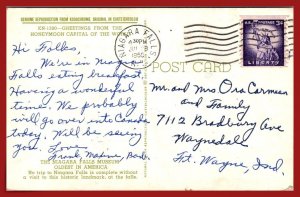 GENUINE REPRODUCTION FROM KODACHROME ORIGINAL IN CURTEICHCOLOR
GREETINGS FROM THE
HONEYMOON CAPITAL OF THE WORLD
Hi Folkes.
We're in Niagara
Falls eating breakfast.
Having a wonderful
time. We probably
will go over into Canada
today. Will be seeing
you. Love,
THE NIAGARA FALLS MUSEUM
OLDEST IN AMERICA
No trip to Niagara Falls is complete without
a visit to this historic landmark, at the falls.
POST CARD
NIAGARA FALLS
PM
1960
U.S. POSTAGE
3¢
LIBERTY
Mr. and Mrs Ora Carmean
and Family
7112 Bradbury Ave
Waynedale
Ft. Wayne, Ind.